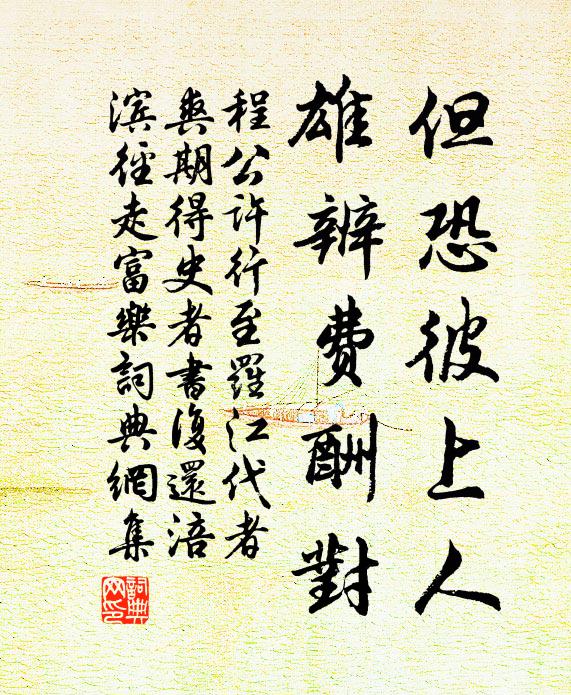 但恐彼上人
雄辨費酬對
程公许行至羅江代者
爽期得史者書復還涪
滨徑走富樂詞典網集
詞典
网印